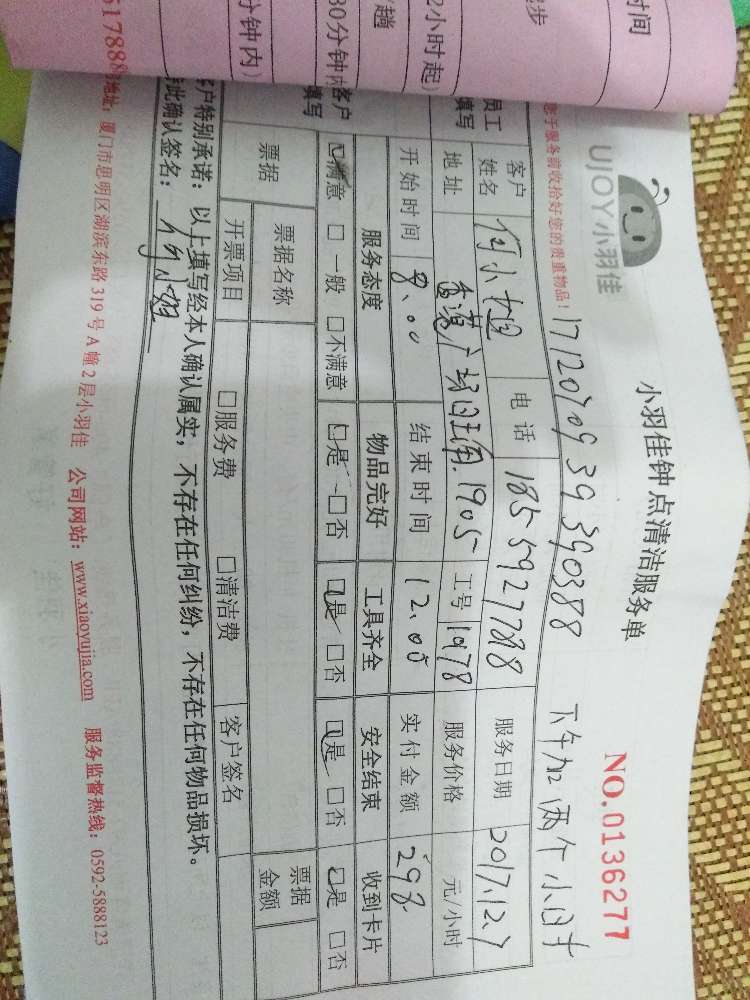 时间
起步
2小时起)
/趟
30分钟内
分钟内)
UJOY小羽佳
小羽佳钟点清洁服务单
NO.0136277
您于服务前收拾好您的贵重物品!
1712070939390388
下午加两个小时
员工填写
客户姓名 何小姐 电话 18559927788 服务日期 2017.12.7
地址 香港广场 1905 工号 1978 服务价格 元/小时
开始时间 8.00 结束时间 12.00 实付金额 298
客户填写
服务态度 物品完好 工具齐全 安全结束 收到卡片
满意 □ 一般 □ 不满意 □ 是 □ 否 □ 是 □ 否 □ 是 □ 否 □ 是 □ 否
票据 票据名称 票据金额
开票项目 □ 服务费 □ 清洁费 客户签名
客户特别承诺:以上填写经本人确认属实,不存在任何纠纷,不存在任何物品损坏。
此确认签名:何小姐
5178888 地址:厦门市思明区湖滨东路319号A幢2层小羽佳 公司网站:www.xiaoyujia.com 服务监督热线:0592-5888123